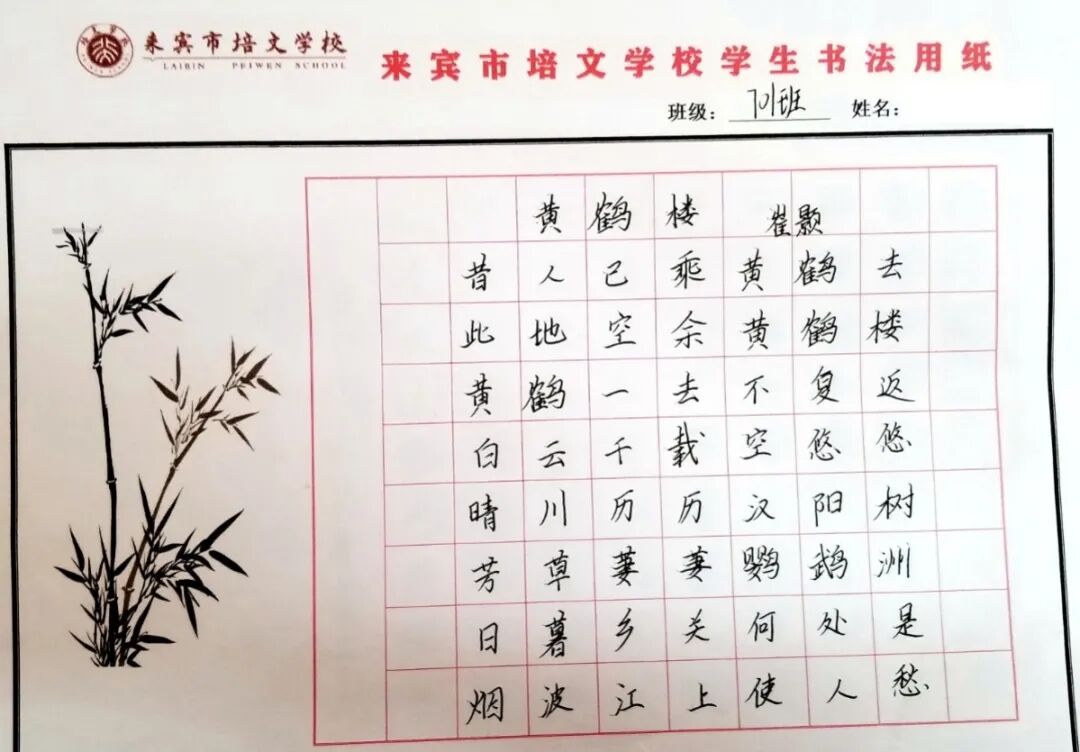 来宾市培文学校
LAIBIN PEIWEN SCHOOL
来宾市培文学校学生书法用纸
班级: 701班 姓名:
黄鹤楼 崔颢
昔人已乘黄鹤去
此地空余黄鹤楼
黄鹤一去不复返
白云千载空悠悠
晴川历历汉阳树
芳草萋萋鹦鹉洲
日暮乡关何处是
烟波江上使人愁